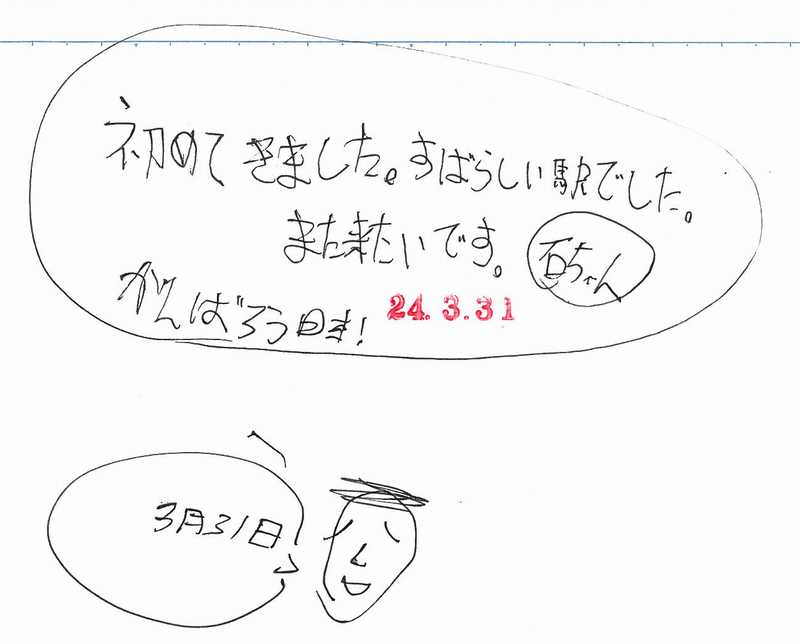 初めてきました。すばらしい駅でした。
また来たいです。
石ちゃん
がんばろう日本!
24.3.31
3月31日